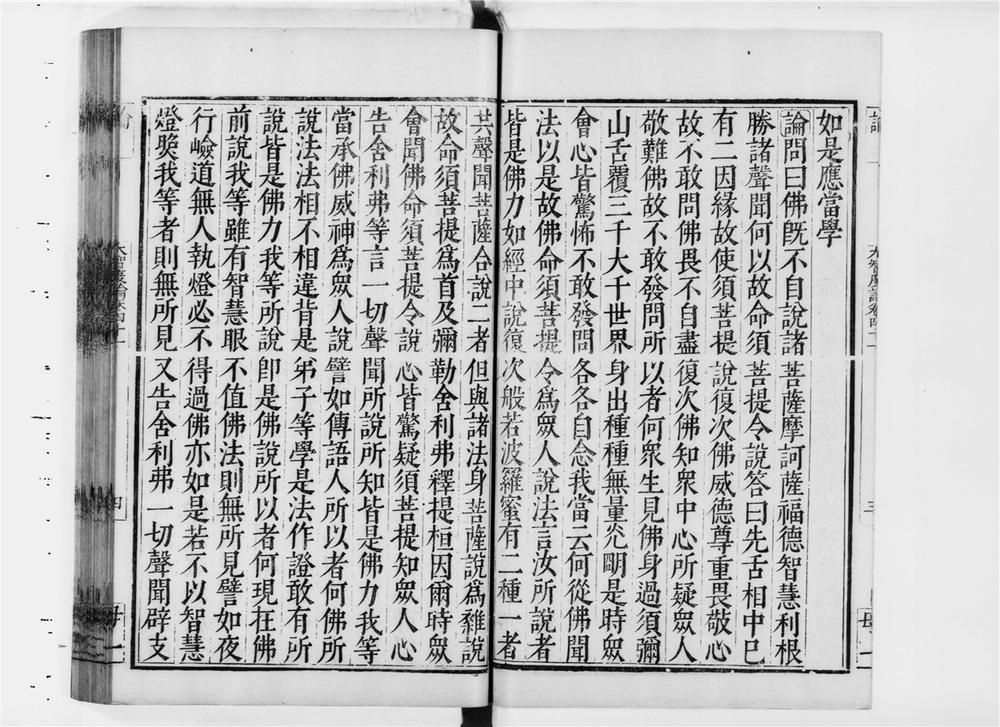 如是應當學
論問曰佛旣不自說諸菩薩摩訶薩福德智慧利根
勝諸聲聞何以故命須菩提令說答曰先舌相中已
有二因緣故使須菩提說復次佛威德尊重畏敬心
故不敢問佛畏不自盡復次佛知衆中心所疑衆人
敬難佛故不敢發問所以者何衆生見佛身過須彌
山舌覆三千大千世界身出種種無量光明是時衆
會心皆驚怖不敢發問各各自念我當云何從佛聞
法以是故佛命須菩提令爲衆人說法言汝所說者
皆是佛力如經中說復次般若波羅蜜有二種一者
共聲聞菩薩合說二者但與諸法身菩薩說爲雜說
故命須菩提爲首及彌勒舍利弗釋提桓因爾時衆
會聞佛命須菩提令說心皆驚疑須菩提知衆人心
告舍利弗等言一切聲聞所說所知皆是佛力我等
當承佛威神爲衆人說譬如傳語人所以者何佛所
說法法相不相違背是弟子等學是法作證敢有所
說皆是佛力我等所說卽是佛說所以者何現在佛
前說我等雖有智慧眼不值佛法則無所見譬如夜
行嶮道無人執燈必不得過佛亦如是若不以智慧
燈煗我等者則無所見又告舍利弗一切聲聞辟支